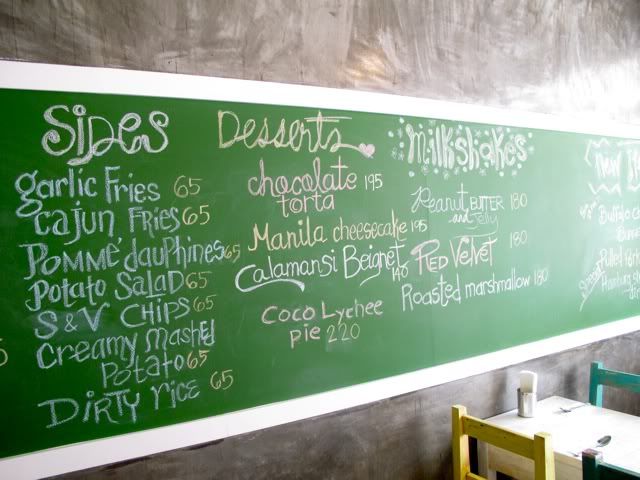 Sides
garlic Fries 65
cajun Fries 65
Pommé dauphines 65
Potato Salad 65
S&V CHIPS 65
Creamy Mashed
Potato 65
Dirty rice 65
Desserts
chocolate 195
torta
Manila cheesecake 195
Calamansi Beignet
140
Coco Lychee
pie 220
Milkshakes
Peanut BUTTER 180
and Jelly
Red Velvet 180
Roasted marshmallow 180
Buffalo
Pulled